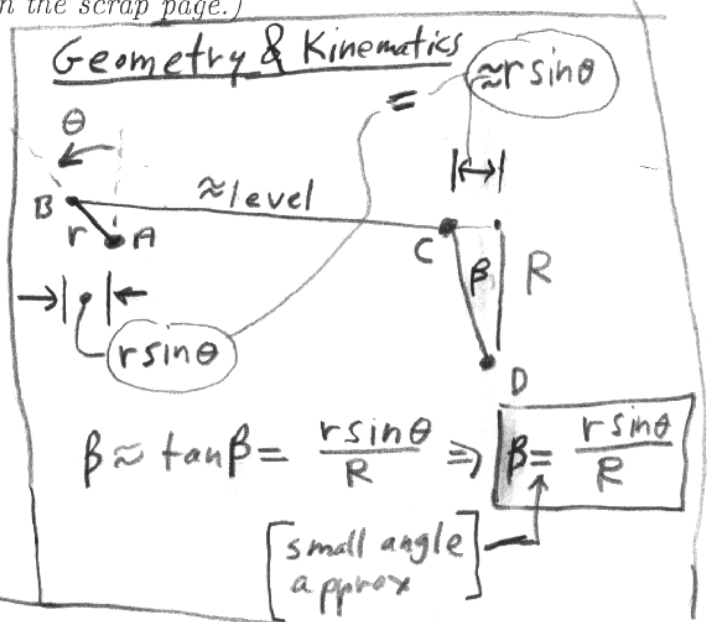 n the scrap page.)
Geometry & Kinematics
≈ r sinθ
=
θ
B
≈level
r
A
C
β
R
r sinθ
D
β ≈ tanβ = r sinθ / R ⇒ β = r sinθ / R
[small angle
approx]